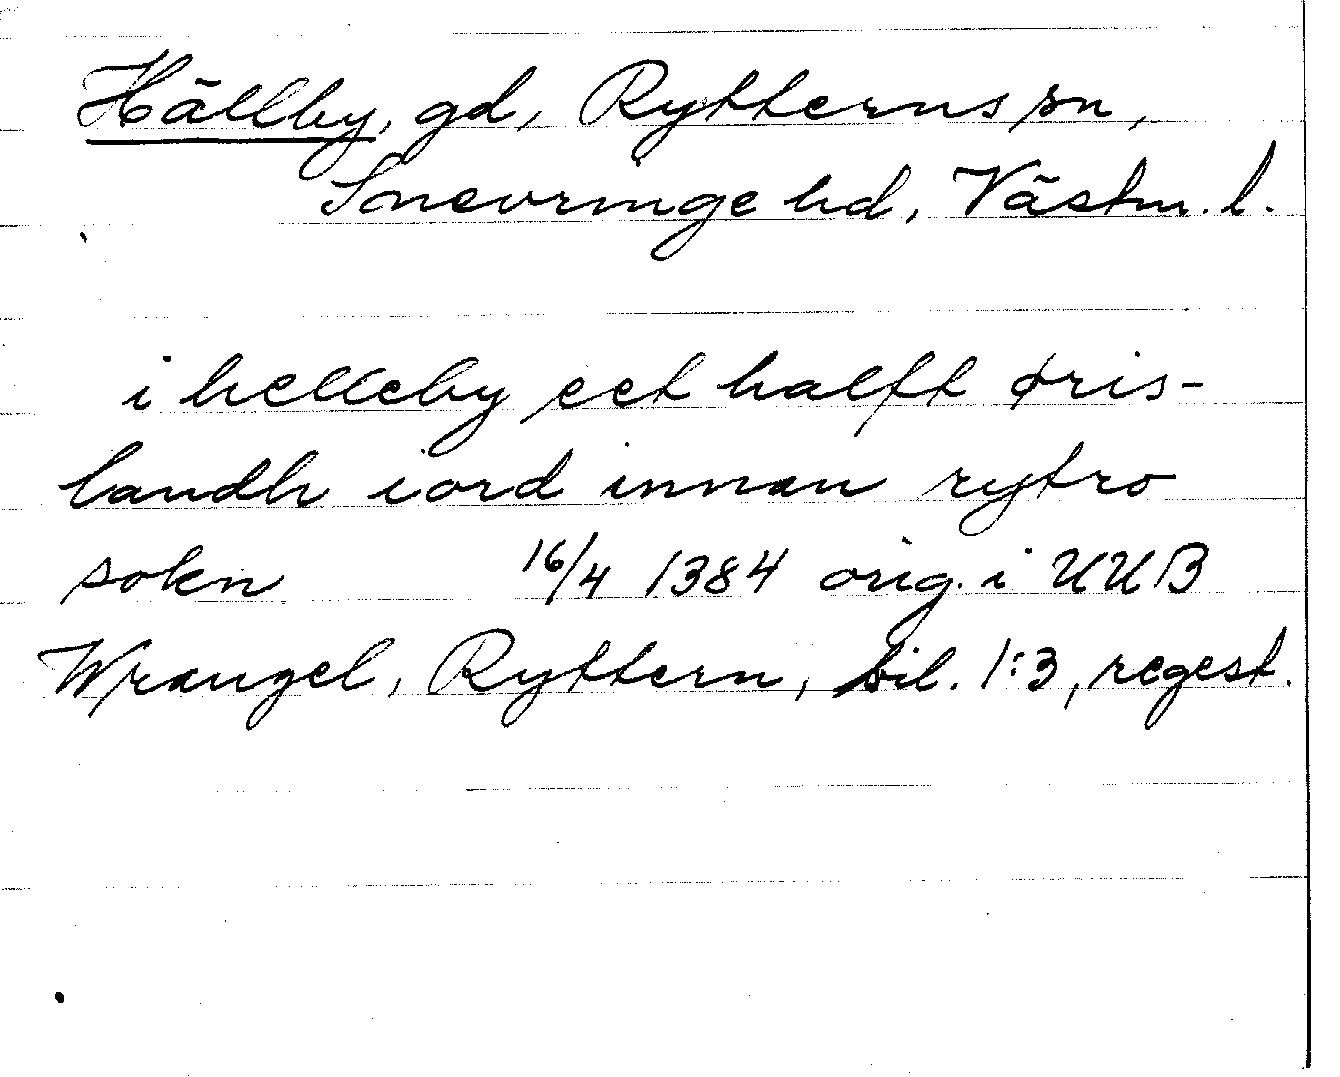 Hällby, gd, Rytterns sn,
Snevringe hd, Västm. l.
i helleby eet halft øris-
landh iord innan rytro
sokn 16/4 1384 orig. i UUB
Wrangel, Ryttern, bil. 1:3, regest.